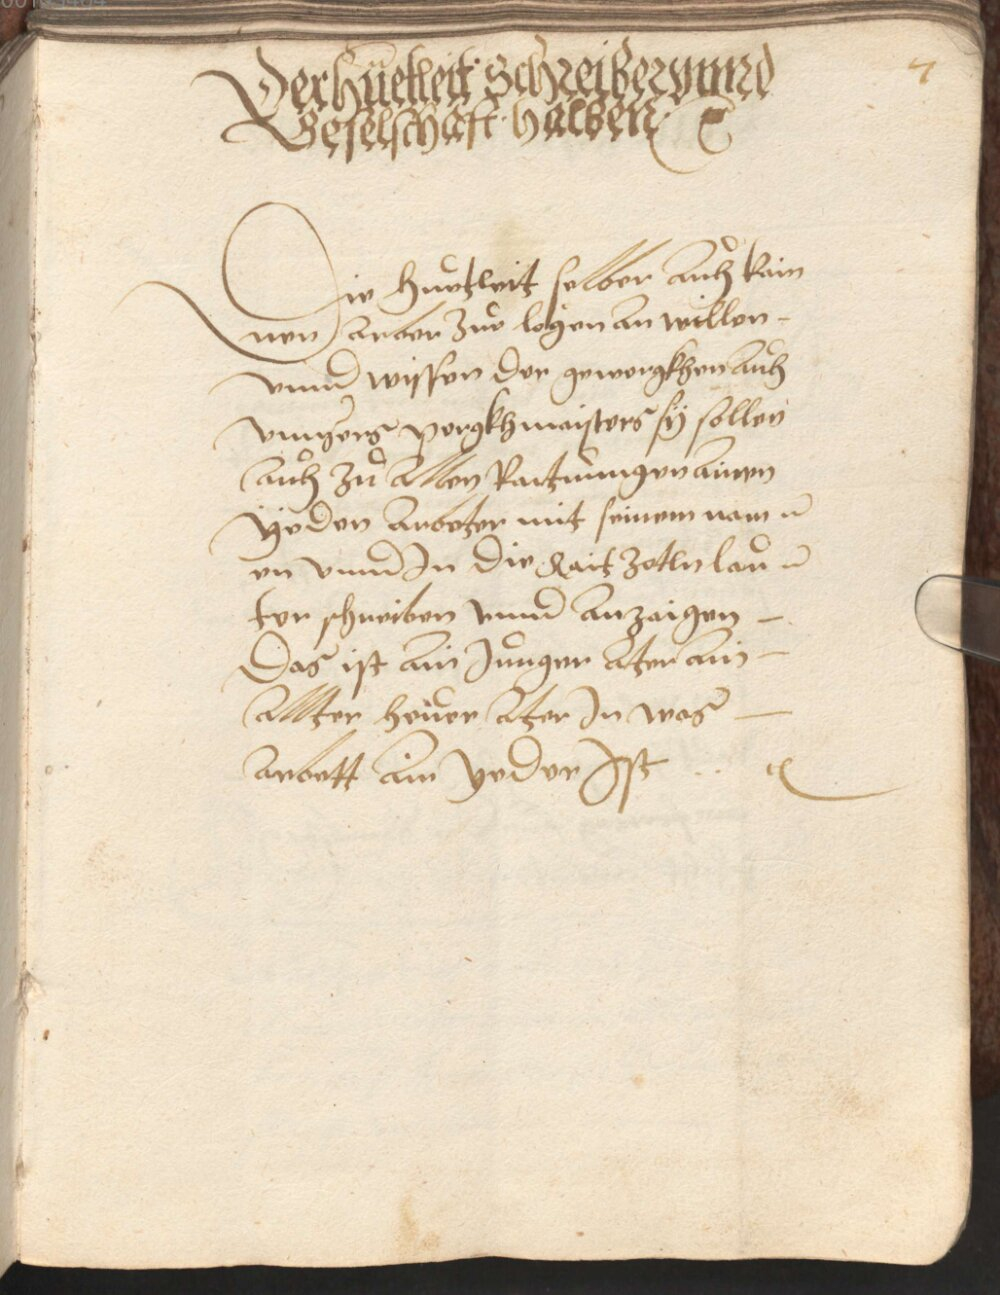 7
Der hüetleit schreiber vnnd
Geselschafft halben
Die Huetleit selber auch kain
nen arber zue legen an willen -
vnnd wissen der gewergkhen auch
vnnsers pergkhmaisters sÿ sollen
auch zu allen Raittungen ainen
yeden arbeter mit seinem nam =
en vnnd In die Rait zetln lau =
ter schreiben vnnd anzaigen -
Das ist ain Junger ater ain -
allter hewer ater In was -
arbett ain yeder Ist